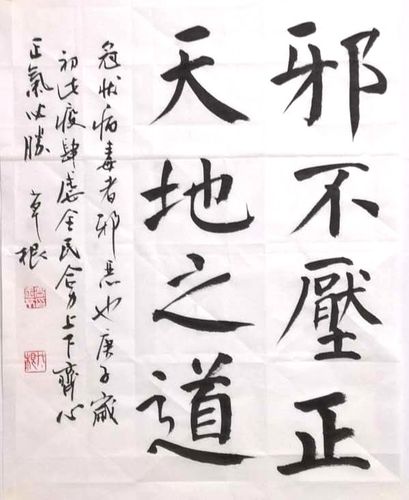 邪不壓正
天地之道
冠状病毒者邪惡也庚子歲
初此疫肆虐全民合力上下齊心
正氣必勝
草根